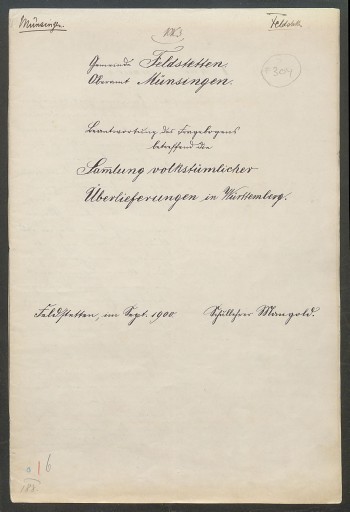 Münsingen.
Feldstetten
Gemeinde Feldstetten.
Oberamt Münsingen.
Beantwortung des Fragebogens
betreffend die
Sam̅lung volkstümlicher
Überlieferungen in Württemberg.
Feldstetten, im Sept. 1900 Schullehrer Mangold.
16